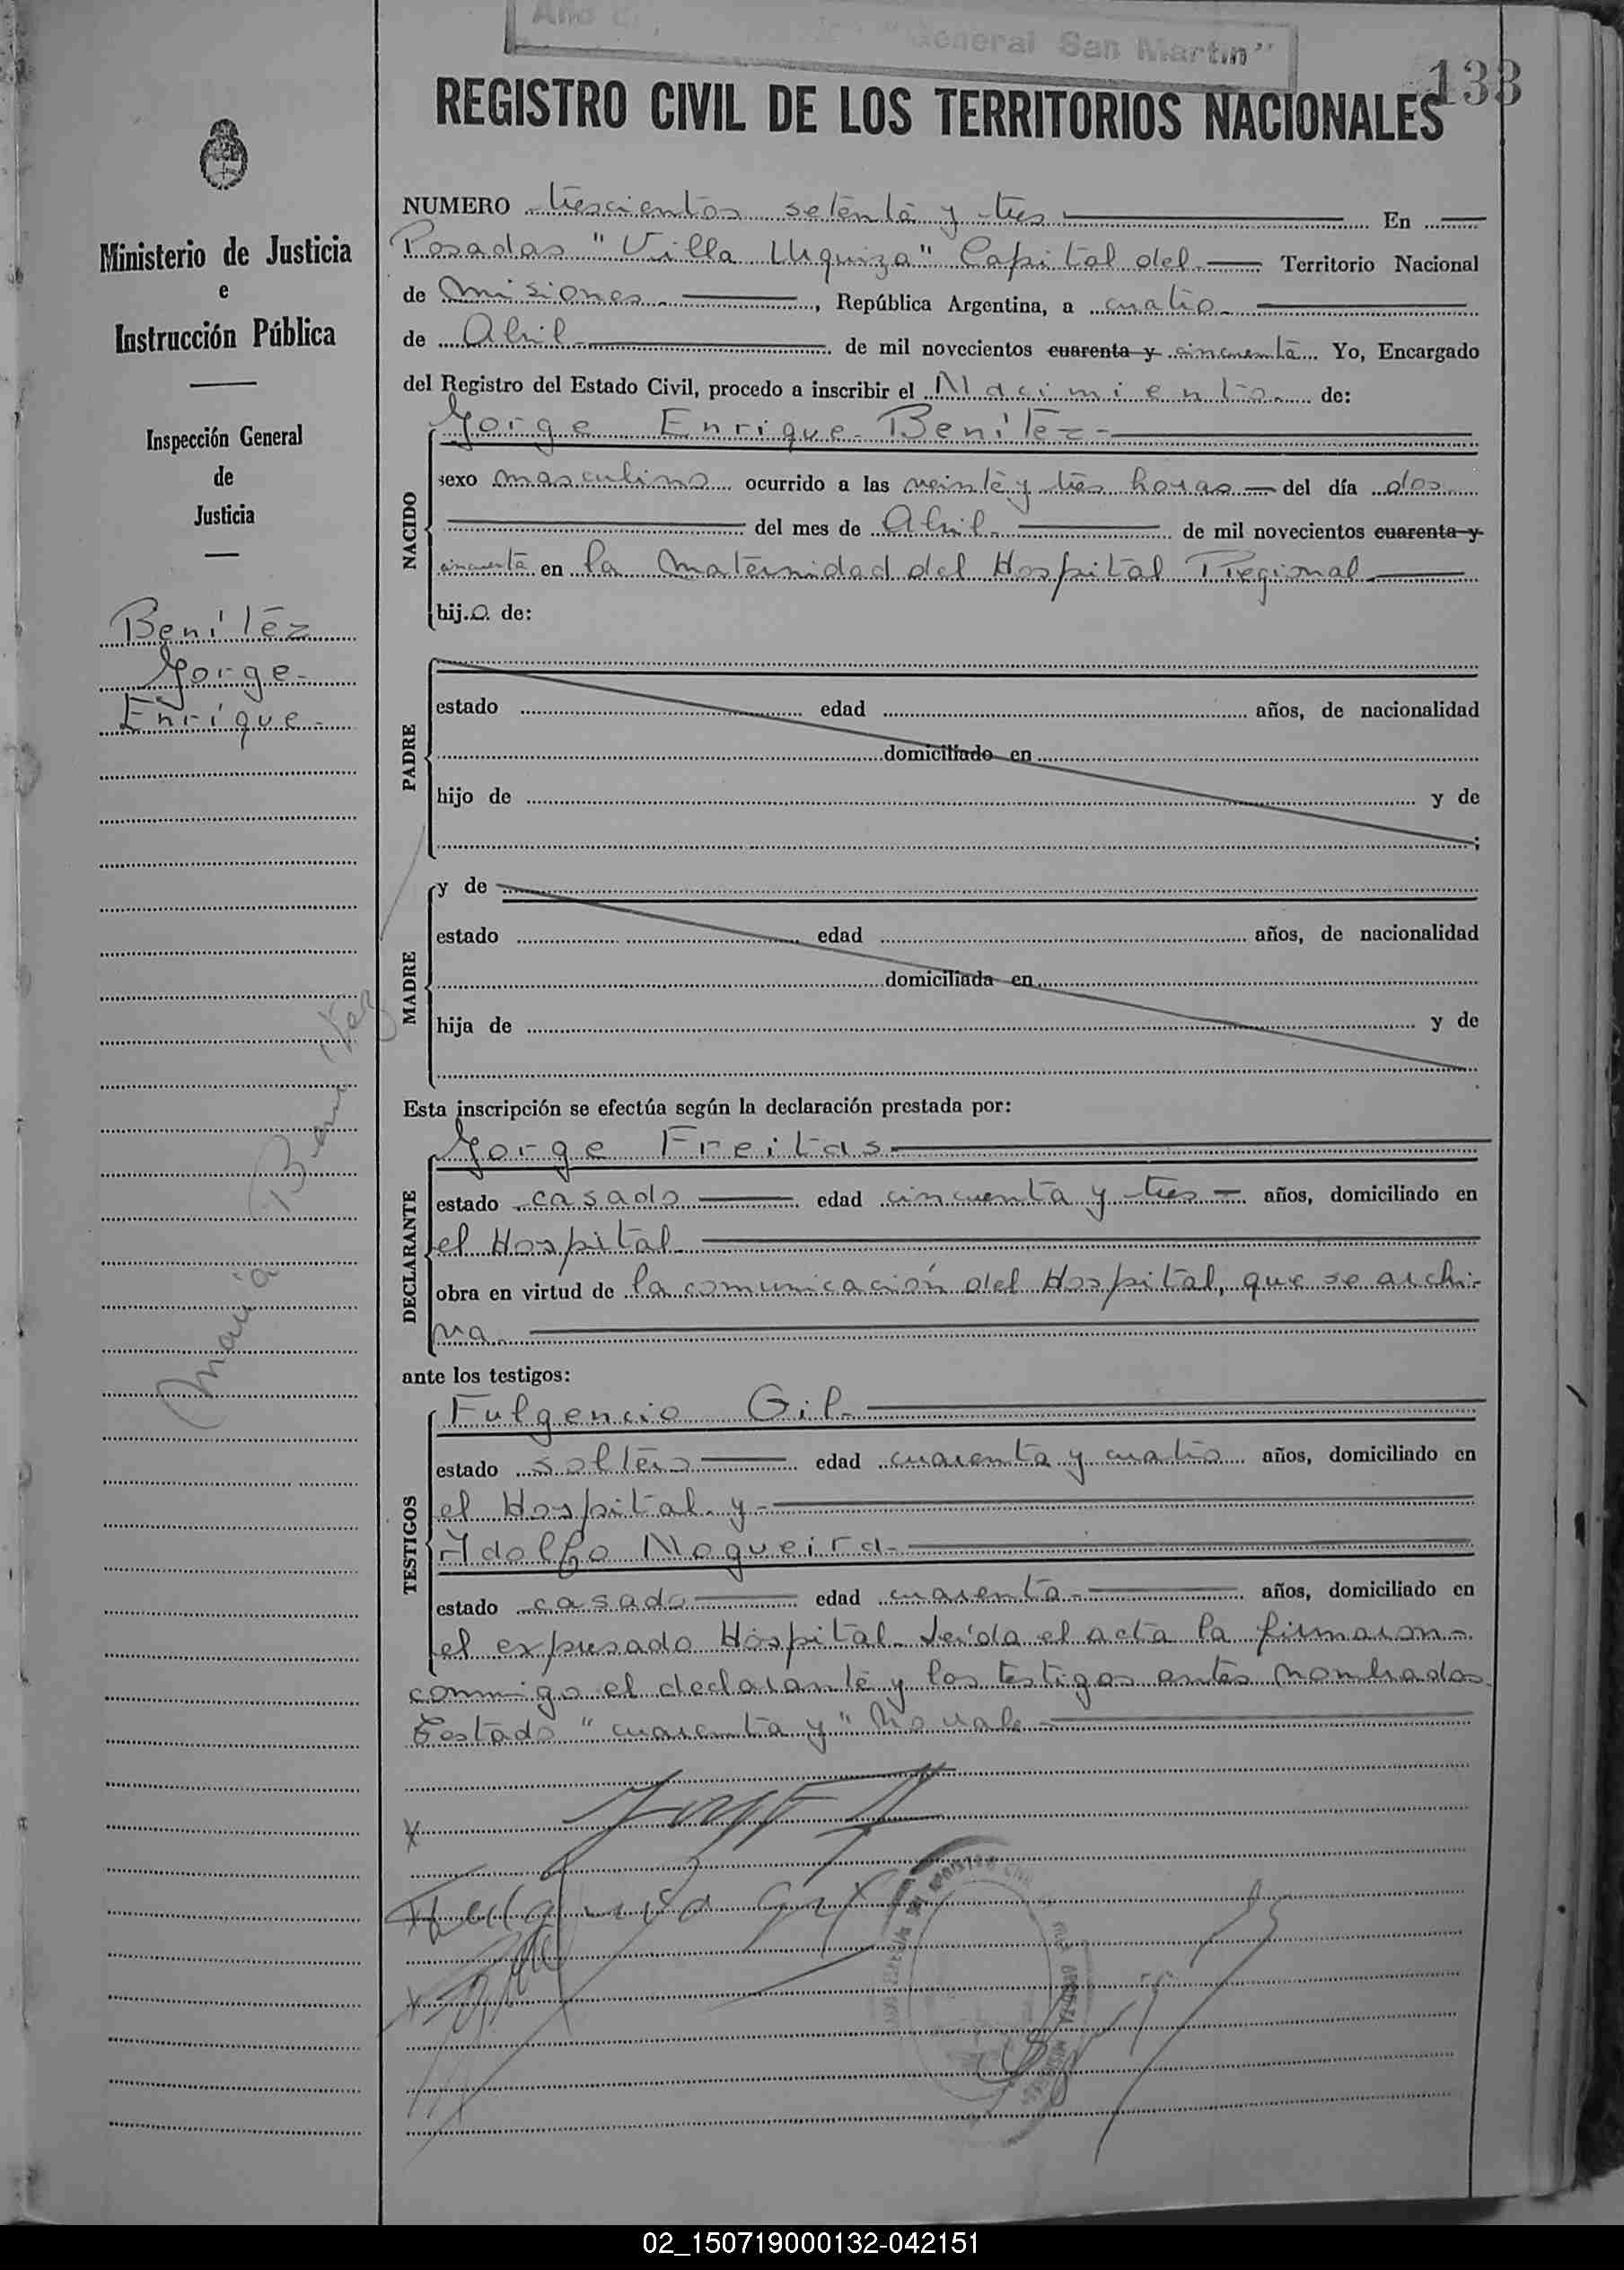 "General San Martín"
133
REGISTRO CIVIL DE LOS TERRITORIOS NACIONALES
Ministerio de Justicia
e
Instrucción Pública
Inspección General
de
Justicia
Benítez
Jorge
Enrique
María Benítez
NUMERO trescientos setenta y tres En
Posadas "Villa Urquiza" Capital del Territorio Nacional
de Misiones, República Argentina, a cuatro
de Abril de mil novecientos cuarenta y cincuenta Yo, Encargado
del Registro del Estado Civil, procedo a inscribir el Nacimiento de:
NACIDO
Jorge Enrique Benítez
sexo masculino ocurrido a las veinte y tres horas del día dos
del mes de Abril de mil novecientos cuarenta y
cincuenta en la Maternidad del Hospital Regional
hijo de:
PADRE
estado edad años, de nacionalidad
domiciliado en
hijo de y de
;
MADRE
y de
estado edad años, de nacionalidad
domiciliada en
hija de y de
Esta inscripción se efectúa según la declaración prestada por:
DECLARANTE
Jorge Freitas
estado casado edad cincuenta y tres años, domiciliado en
el Hospital
obra en virtud de la comunicación del Hospital, que se archi-
va.
ante los testigos:
TESTIGOS
Fulgencio Gil
estado soltero edad cuarenta y cuatro años, domiciliado en
el Hospital y
Adolfo Nogueira
estado casado edad cuarenta años, domiciliado en
el expresado Hospital. Leída el acta la firmaron
conmigo el declarante y los testigos antes nombrados
Testado "cuarenta y" No vale
Fulgencio Gil
02_150719000132-042151